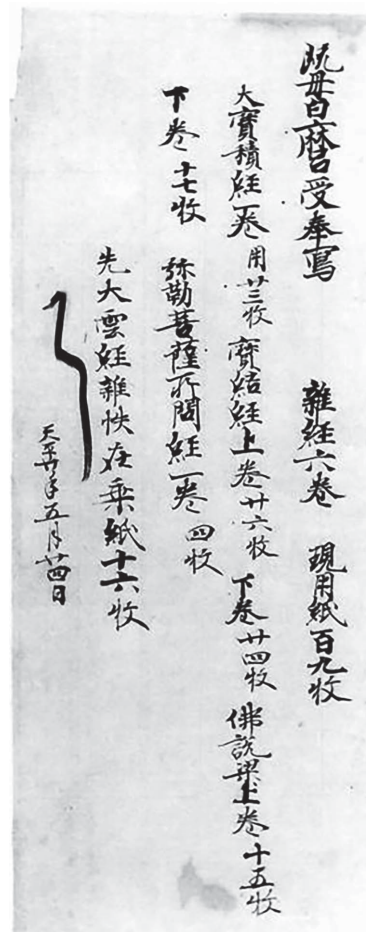 既母白麿受奉寫 雜經六卷 現用紙百九枚
大寳積經一卷 用廿三枚 寳結經上卷廿六枚 下卷廿四枚 佛説梁上卷十五枚
下卷十七枚 弥勒菩薩所問經一卷四枚
先大雲経雜帙在乗紙十六枚
天平廿年五月廿四日